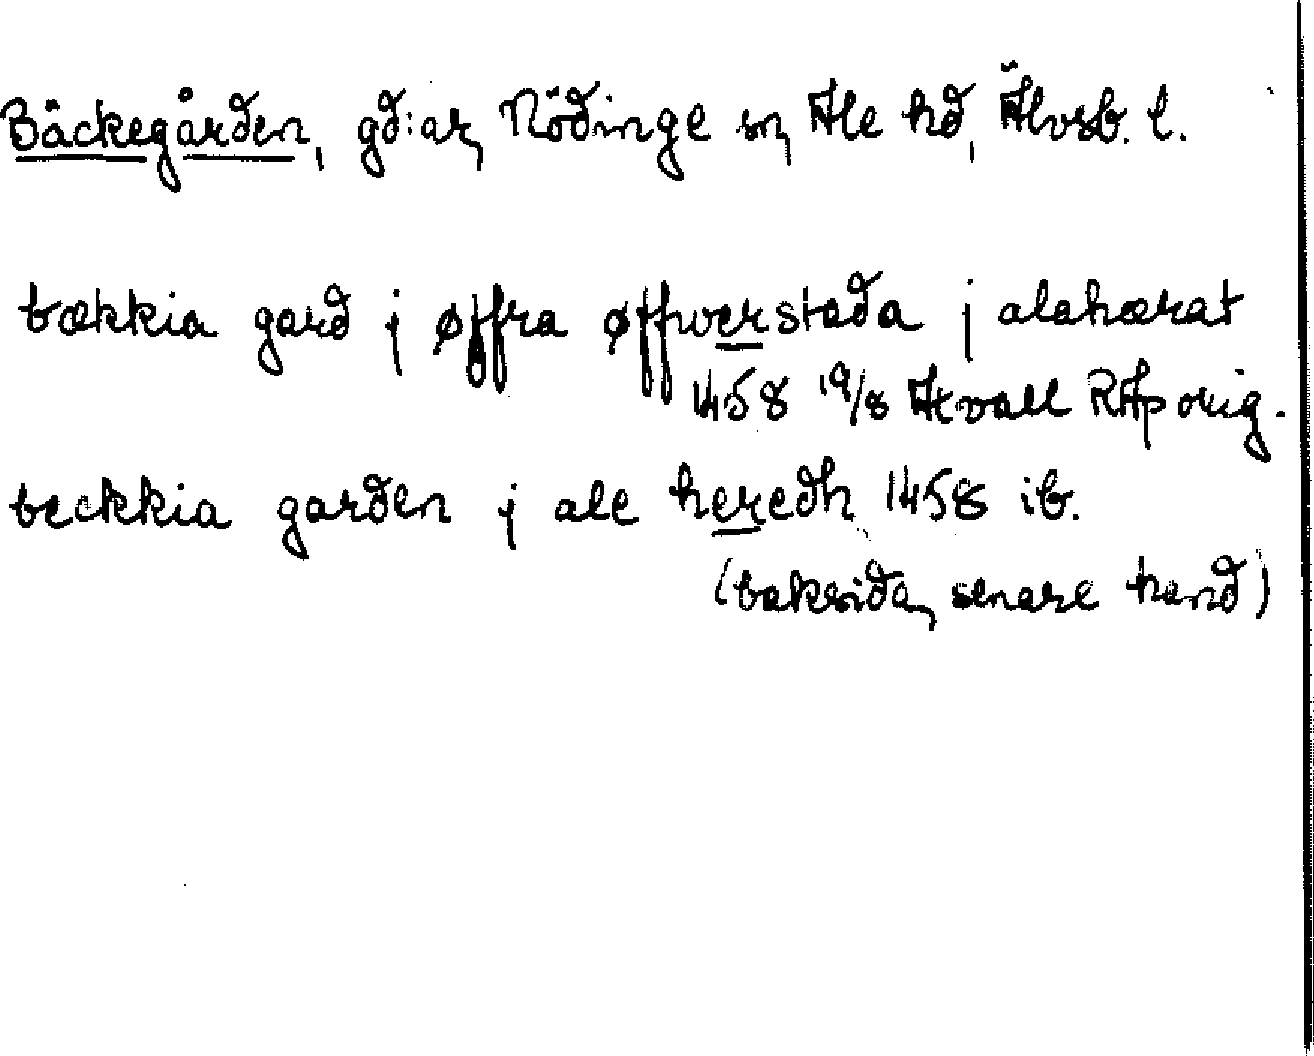 Bäckegården, gd:ar, Nödinge sn, Ale hd, Älvsb. l.
bækkia gard j øffra øffwerstada j alahærat
1458 19/8 Atvall RAp orig.
beckkia garden j ale heredh 1458 ib.
(baksida, senare hand)